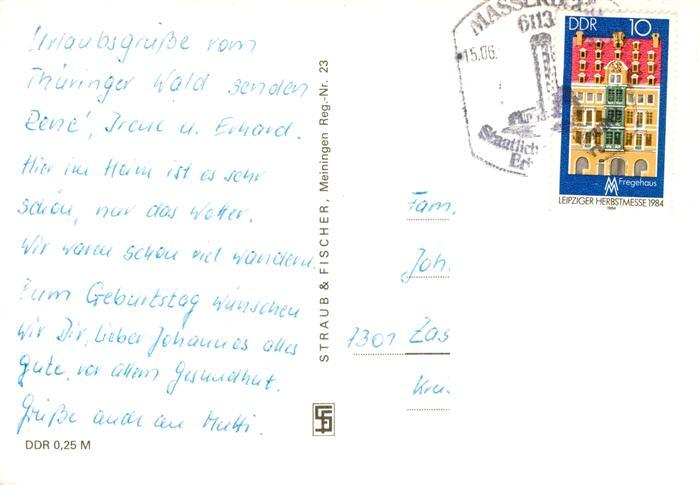 Urlaubsgrüße vom
Thüringer Wald senden
René, Irene u. Erhard.
Hier im Heim ist es sehr
schön, nur das Wetter.
Wir waren schon viel wandern.
Zum Geburtstag wünschen
wir Dir, lieber Johannes alles
Gute, vor allem Gesundheit.
Grüße auch an Mutti.
DDR 0,25 M
STRAUB & FISCHER, Meiningen Reg.-Nr. 23
6113
15.06.
Staatlich
DDR 10
Fregehaus
LEIPZIGER HERBSTMESSE 1984
1984
Fam.
Joh.
7301 Zas
Kreis